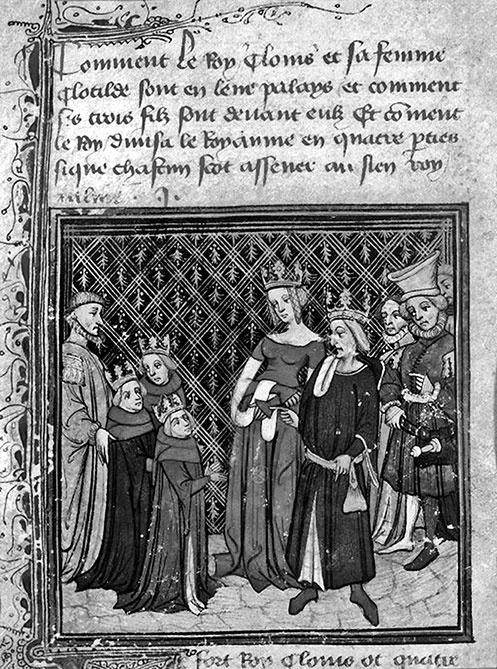 Comment le Roy Clouis et sa femme
Clotilde sont en leur palays et comment
ses trois filz sont deuant eulx Et coment
le Roy diuisa le Royaume en quatre pties
sique chascun scot assener au sien roy
fort Roy Clouis ot quatre